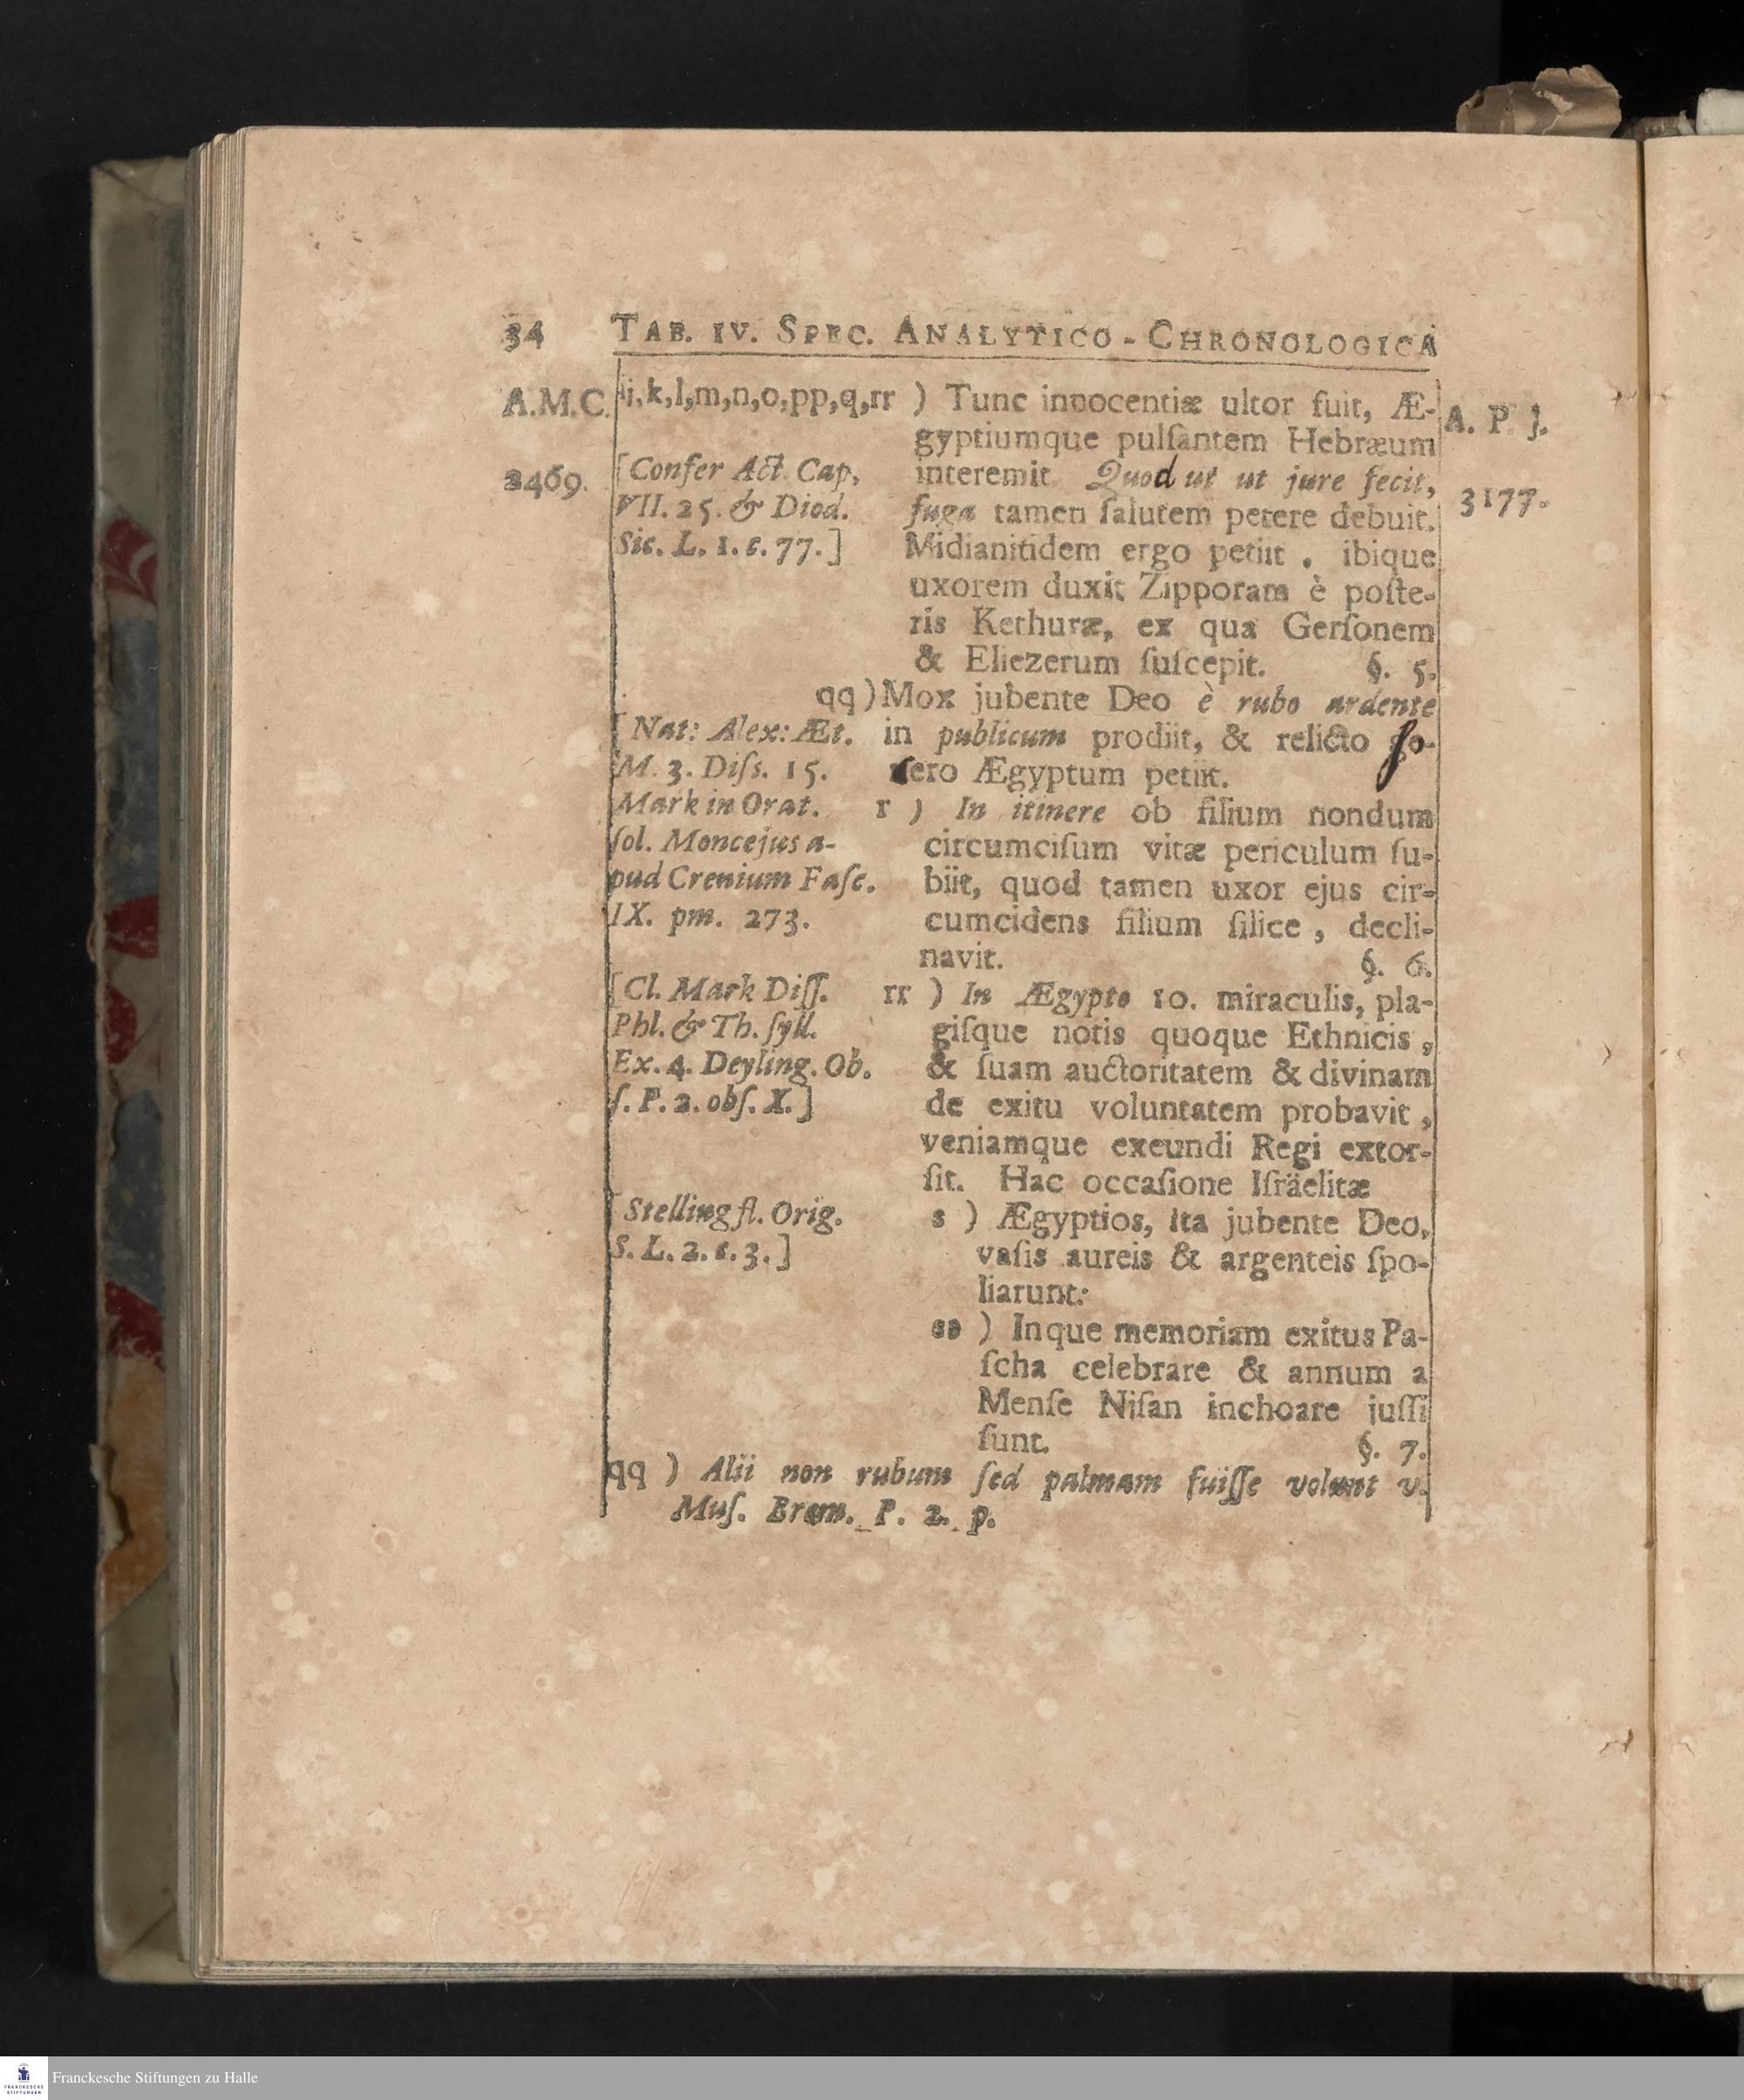 34 TAB. IV. SPEC. ANALYTICO - CHRONOLOGICA
A.M.C. ij,k,l,m,n,o,pp,q,rr ) Tunc innocentiæ ultor fuit, Æ- A. P. J.
gyptiumque pulſantem Hebræum
2469. [Confer Act. Cap, interemit. Quod ut ut jure fecit, 3177.
VII. 25. & Diod. fuga tamen ſalutem petere debuit.
Sic. L. 1. c. 77.] Midianitidem ergo petiit . ibique
uxorem duxit Zipporam è poſte-
ris Kethuræ, ex qua Gerſonem
& Eliezerum ſuſcepit. §. 5.
qq ) Mox jubente Deo è rubo ardente
[Nat: Alex: Æt. in publicum prodiit, & relicto ſo-
M. 3. Diſs. 15. cero Ægyptum petiit.
Mark in Orat. r ) In itinere ob filium nondum
ſol. Moncejus a- circumciſum vitæ periculum ſu-
pud Crenium Faſc. biit, quod tamen uxor ejus cir-
IX. pm. 273. cumcidens filium ſilice , decli-
navit. §. 6.
[Cl. Mark Diſſ. rr ) In Ægypto 10. miraculis, pla-
Phl. & Th. ſyll. giſque notis quoque Ethnicis ,
Ex. 4. Deyling. Ob. & ſuam auctoritatem & divinam
ſ. P. 2. obſ. X.] de exitu voluntatem probavit ,
veniamque exeundi Regi extor-
ſit. Hac occaſione Iſräelitæ
[Stelling fl. Orig. s ) Ægyptios, ita jubente Deo,
S. L. 2. c. 3.] vaſis aureis & argenteis ſpo-
liarunt:
ss ) Inque memoriam exitus Pa-
ſcha celebrare & annum a
Menſe Niſan inchoare juſſi
ſunt. §. 7.
qq ) Alii non rubum ſed palmam fuiſſe volunt v.
Muſ. Brem. P. 2. p.
FRANCKESCHE
STIFTUNGEN
Franckesche Stiftungen zu Halle